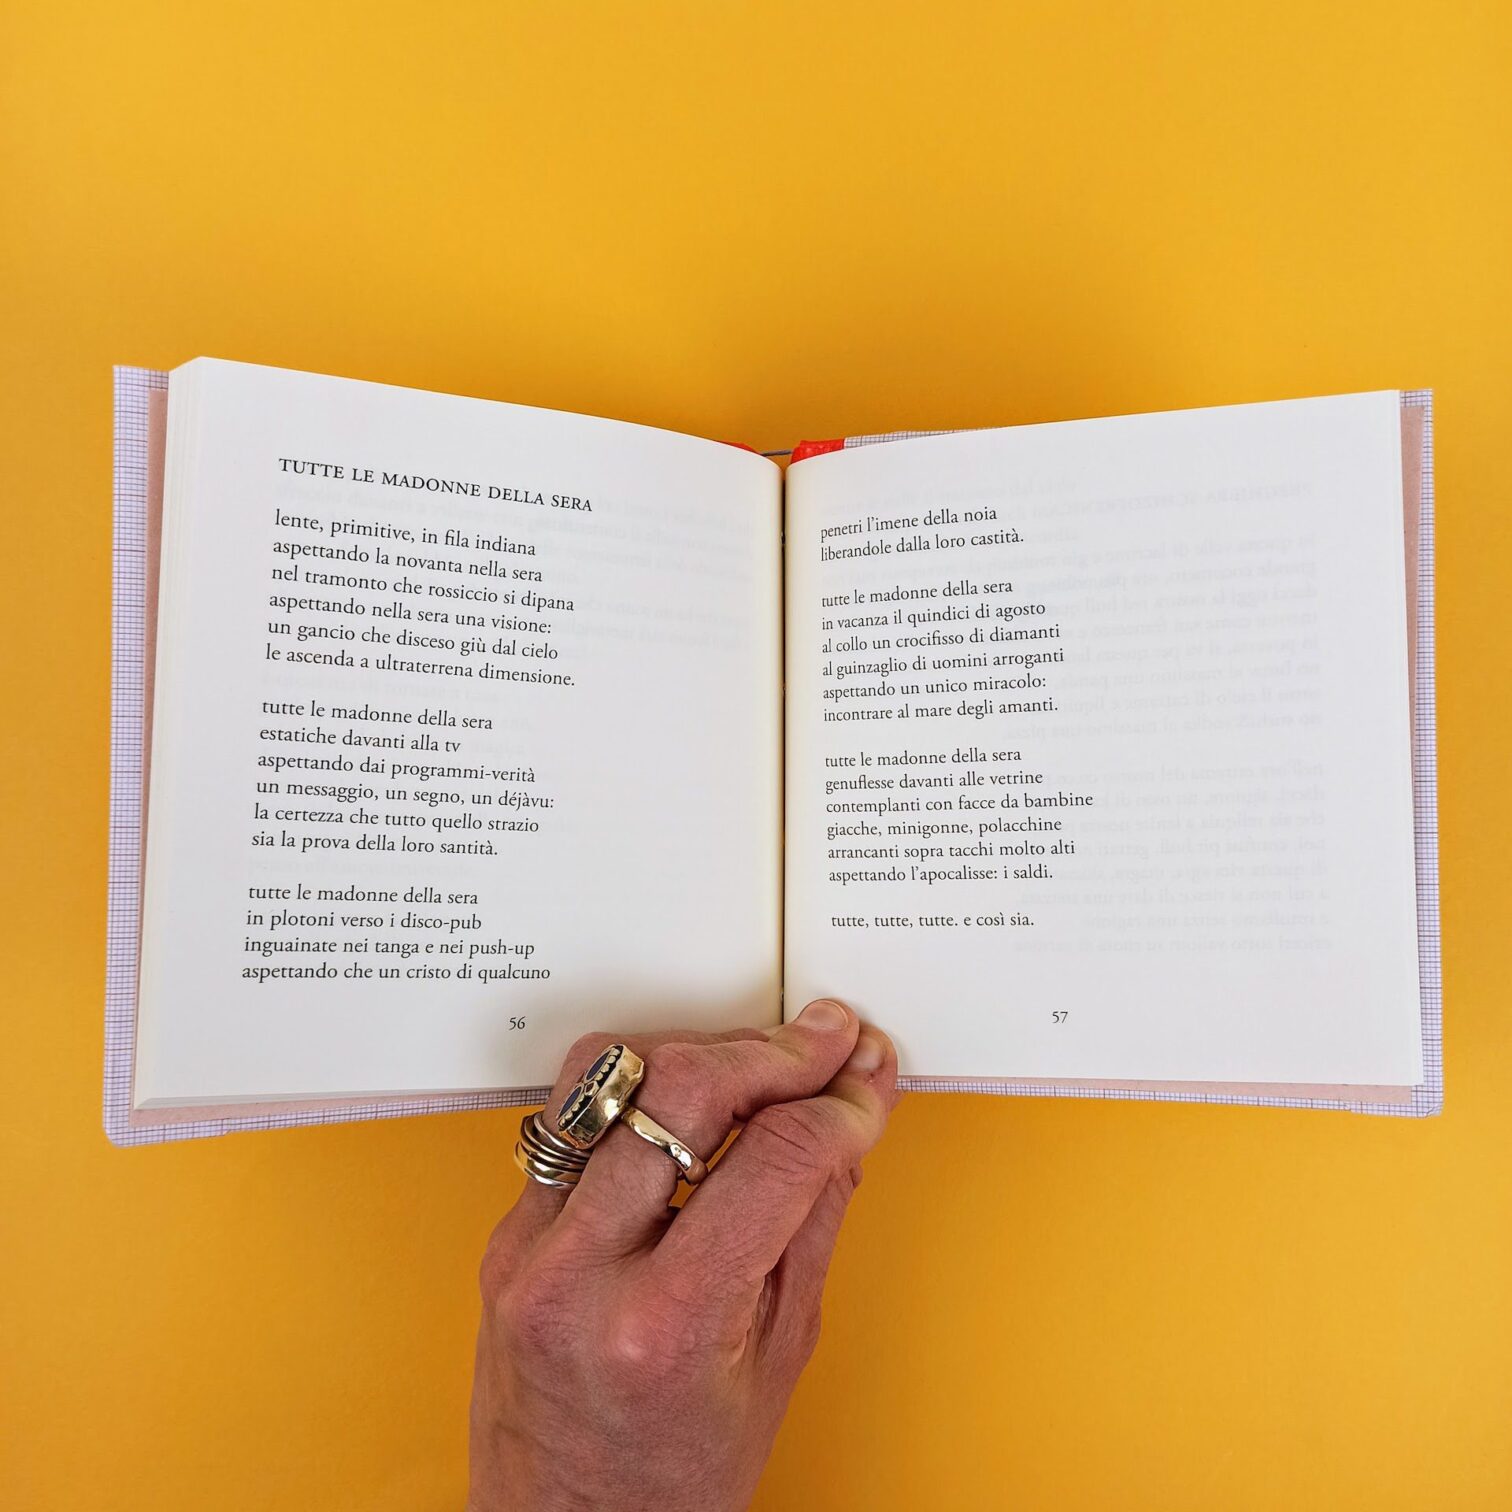 TUTTE LE MADONNE DELLA SERA
lente, primitive, in fila indiana
aspettando la novanta nella sera
nel tramonto che rossiccio si dipana
aspettando nella sera una visione:
un gancio che disceso giù dal cielo
le ascenda a ultraterrena dimensione.
tutte le madonne della sera
estatiche davanti alla tv
aspettando dai programmi-verità
un messaggio, un segno, un déjàvu:
la certezza che tutto quello strazio
sia la prova della loro santità.
tutte le madonne della sera
in plotoni verso i disco-pub
inguainate nei tanga e nei push-up
aspettando che un cristo di qualcuno
56
penetri l'imene della noia
liberandole dalla loro castità.
tutte le madonne della sera
in vacanza il quindici di agosto
al collo un crocifisso di diamanti
al guinzaglio di uomini arroganti
aspettando un unico miracolo:
incontrare al mare degli amanti.
tutte le madonne della sera
genuflesse davanti alle vetrine
contemplanti con facce da bambine
giacche, minigonne, polacchine
arrancanti sopra tacchi molto alti
aspettando l'apocalisse: i saldi.
tutte, tutte, tutte. e così sia.
57